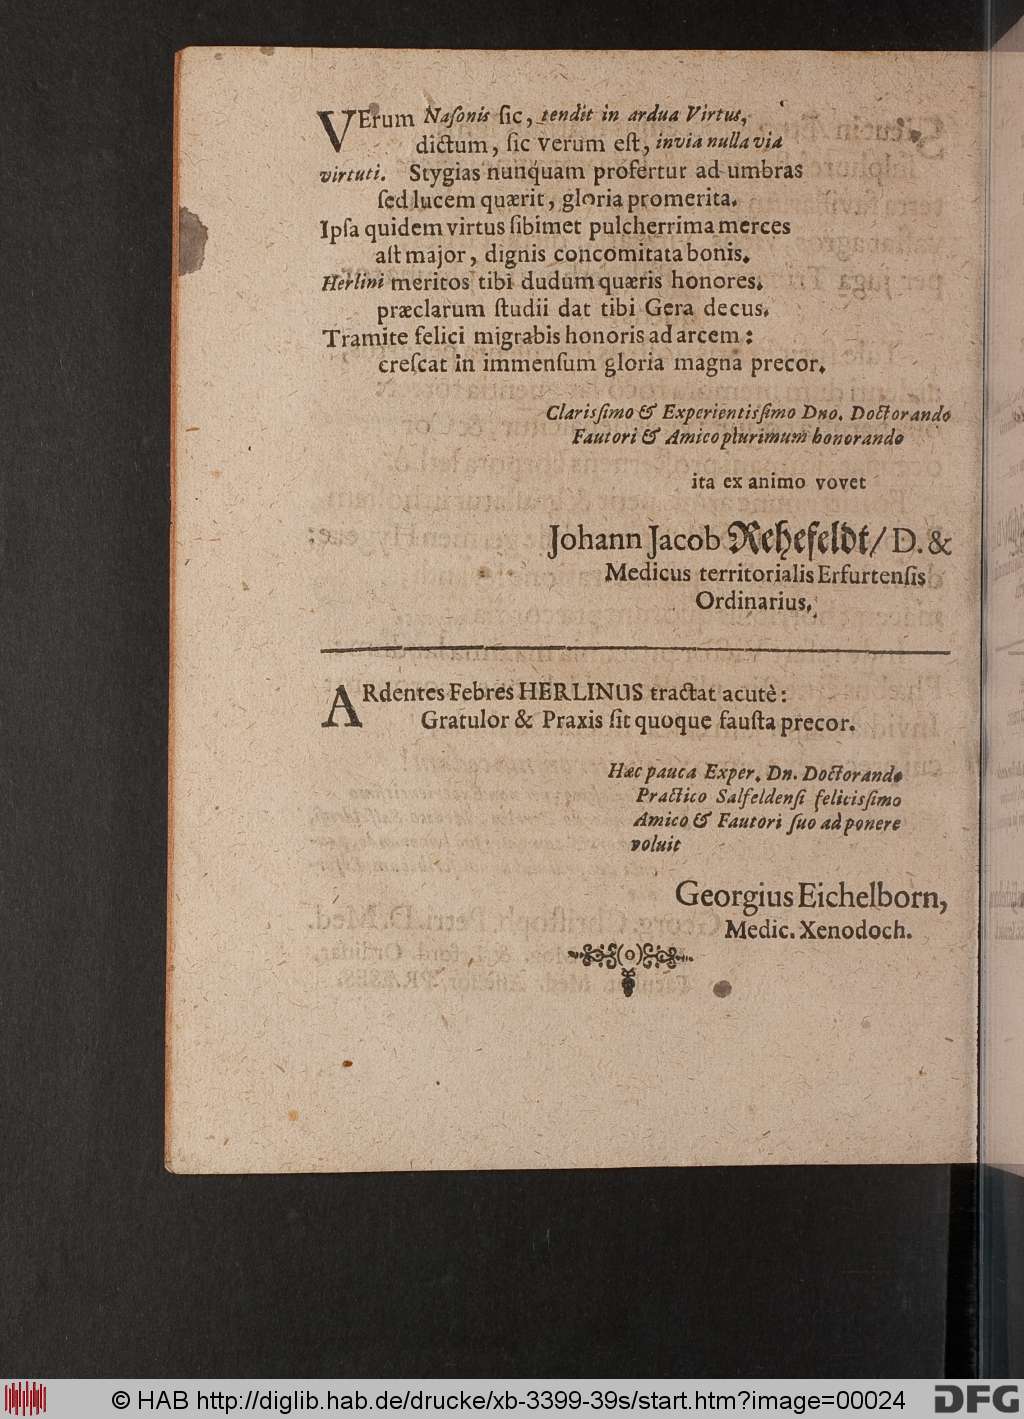 VErum Naſonis ſic, tendit in ardua Virtus,
dictum, ſic verum eſt, invia nulla via
virtuti. Stygias nunquam profertur ad umbras
ſed lucem quærit, gloria promerita.
Ipſa quidem virtus ſibimet pulcherrima merces
aſt major, dignis concomitata bonis.
Herlini meritos tibi dudum quæris honores.
præclarum ſtudii dat tibi Gera decus.
Tramite felici migrabis honoris ad arcem:
creſcat in immenſum gloria magna precor.
Clarisſimo & Experientisſimo Dno. Doctorando
Fautori & Amico plurimum honorando
ita ex animo vovet
Johann Jacob Rehefeldt/ D. &
Medicus territorialis Erfurtenſis
Ordinarius.
ARdentes Febres HERLINUS tractat acutè:
Gratulor & Praxis ſit quoque fauſta precor.
Hæc pauca Exper. Dn. Doctorando
Practico Salfeldenſi felicisſimo
Amico & Fautori ſuo adponere
voluit
Georgius Eichelborn,
Medic. Xenodoch.
(o)
© HAB http://diglib.hab.de/drucke/xb-3399-39s/start.htm?image=00024
DFG